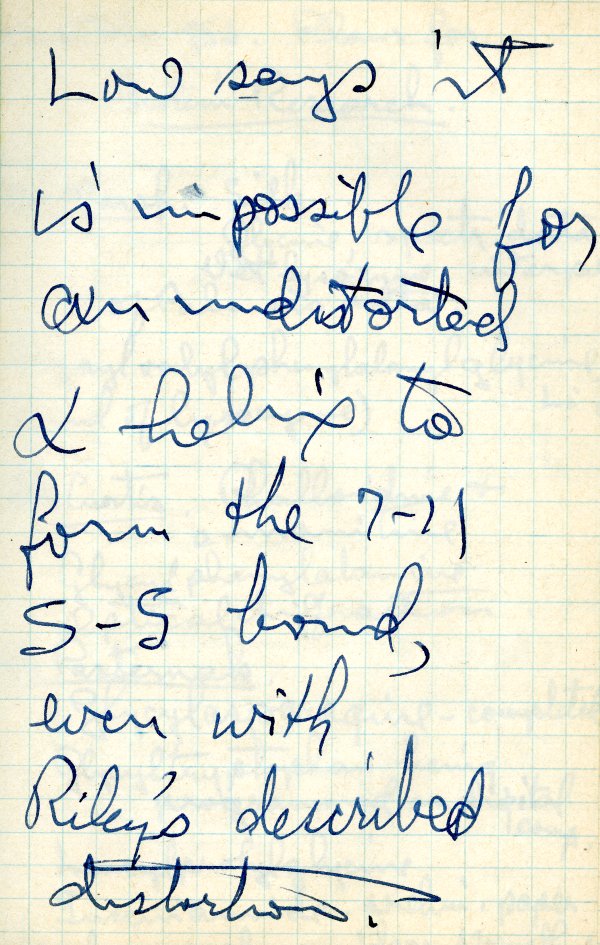 Low says it
is impossible for
an undistorted
α helix to
form the 7-11
S-S bond,
even with
Riley's described
distortion.